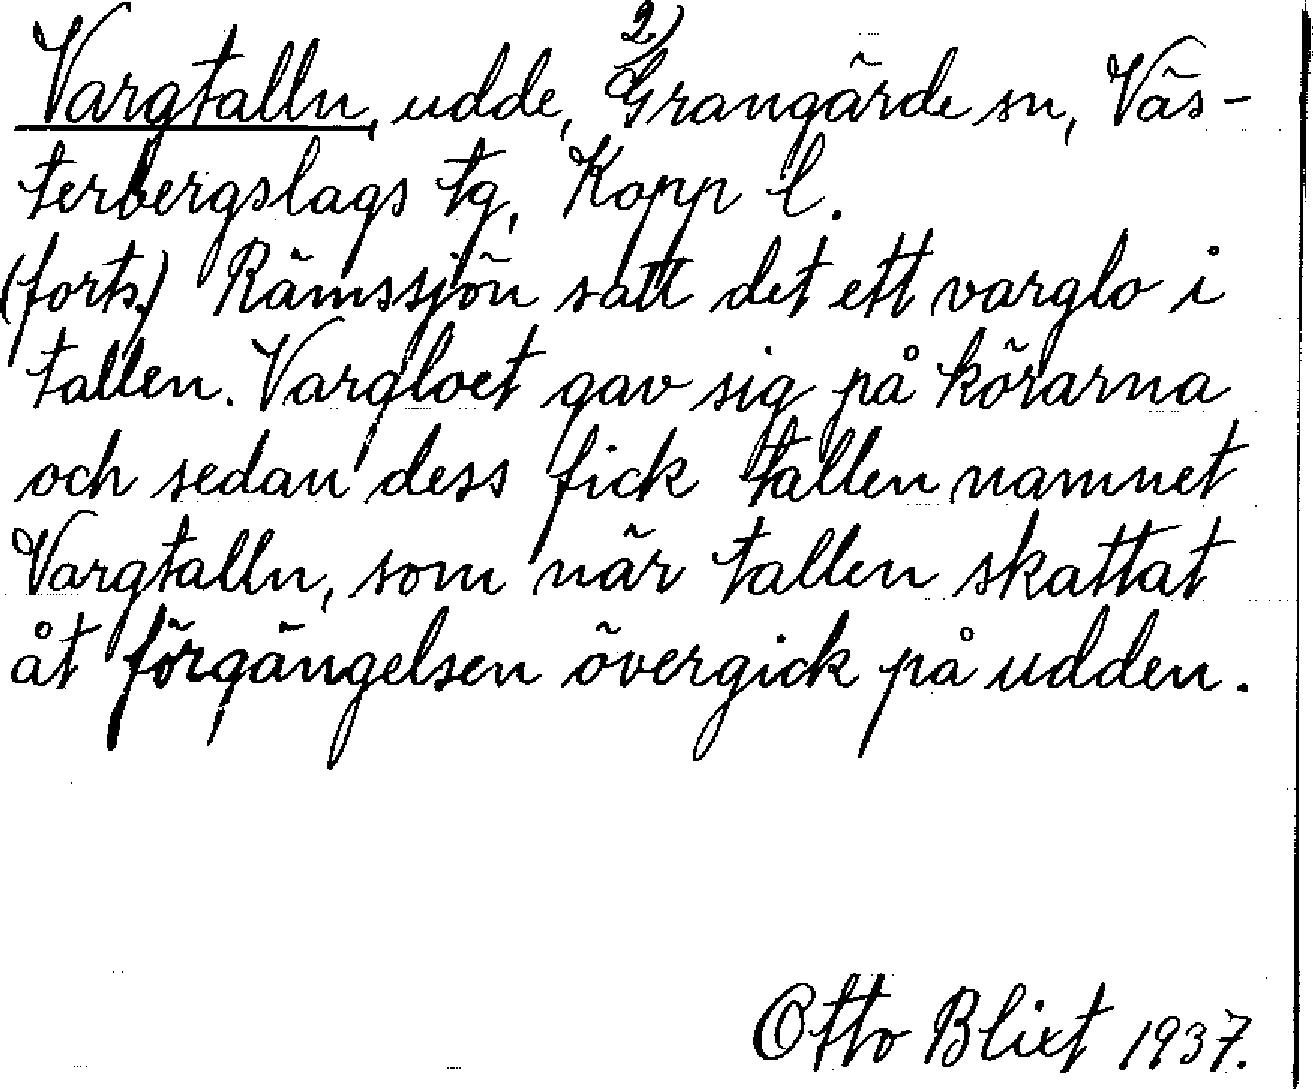 2)
Vargtalln, udde, Grangärde sn, Väs-
terbergslags tg, Kopp l.
(forts.) Rämssjön satt det ett varglo i
tallen. Vargloet gav sig på körarna
och sedan dess fick tallen namnet
Vargtalln, som när tallen skattat
åt förgängelsen övergick på udden.
Otto Blixt 1937.